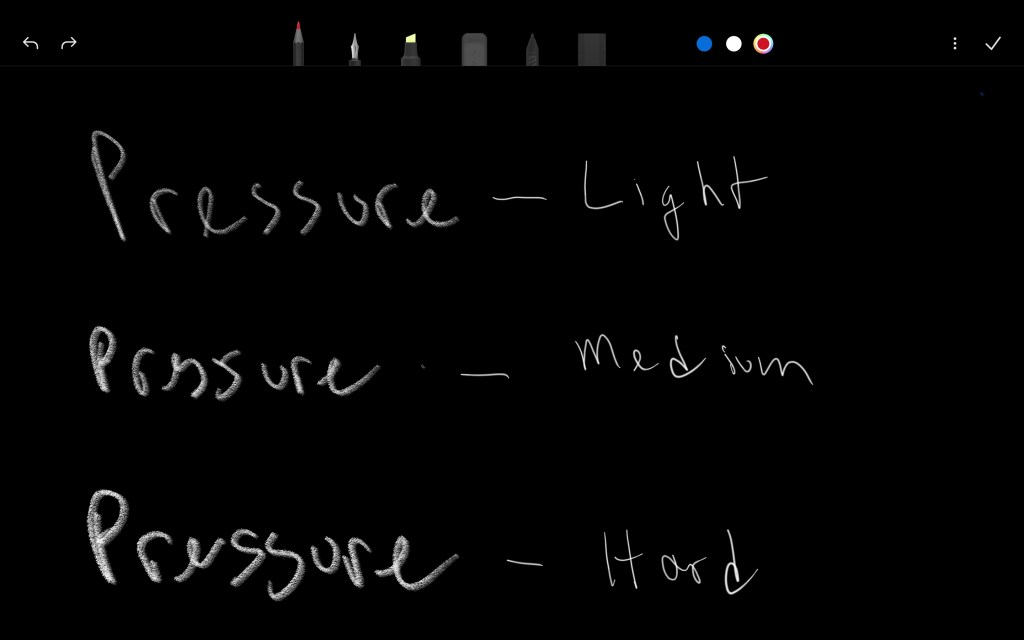 Pressure — Light
Prssure — Medium
Pressure — Hard